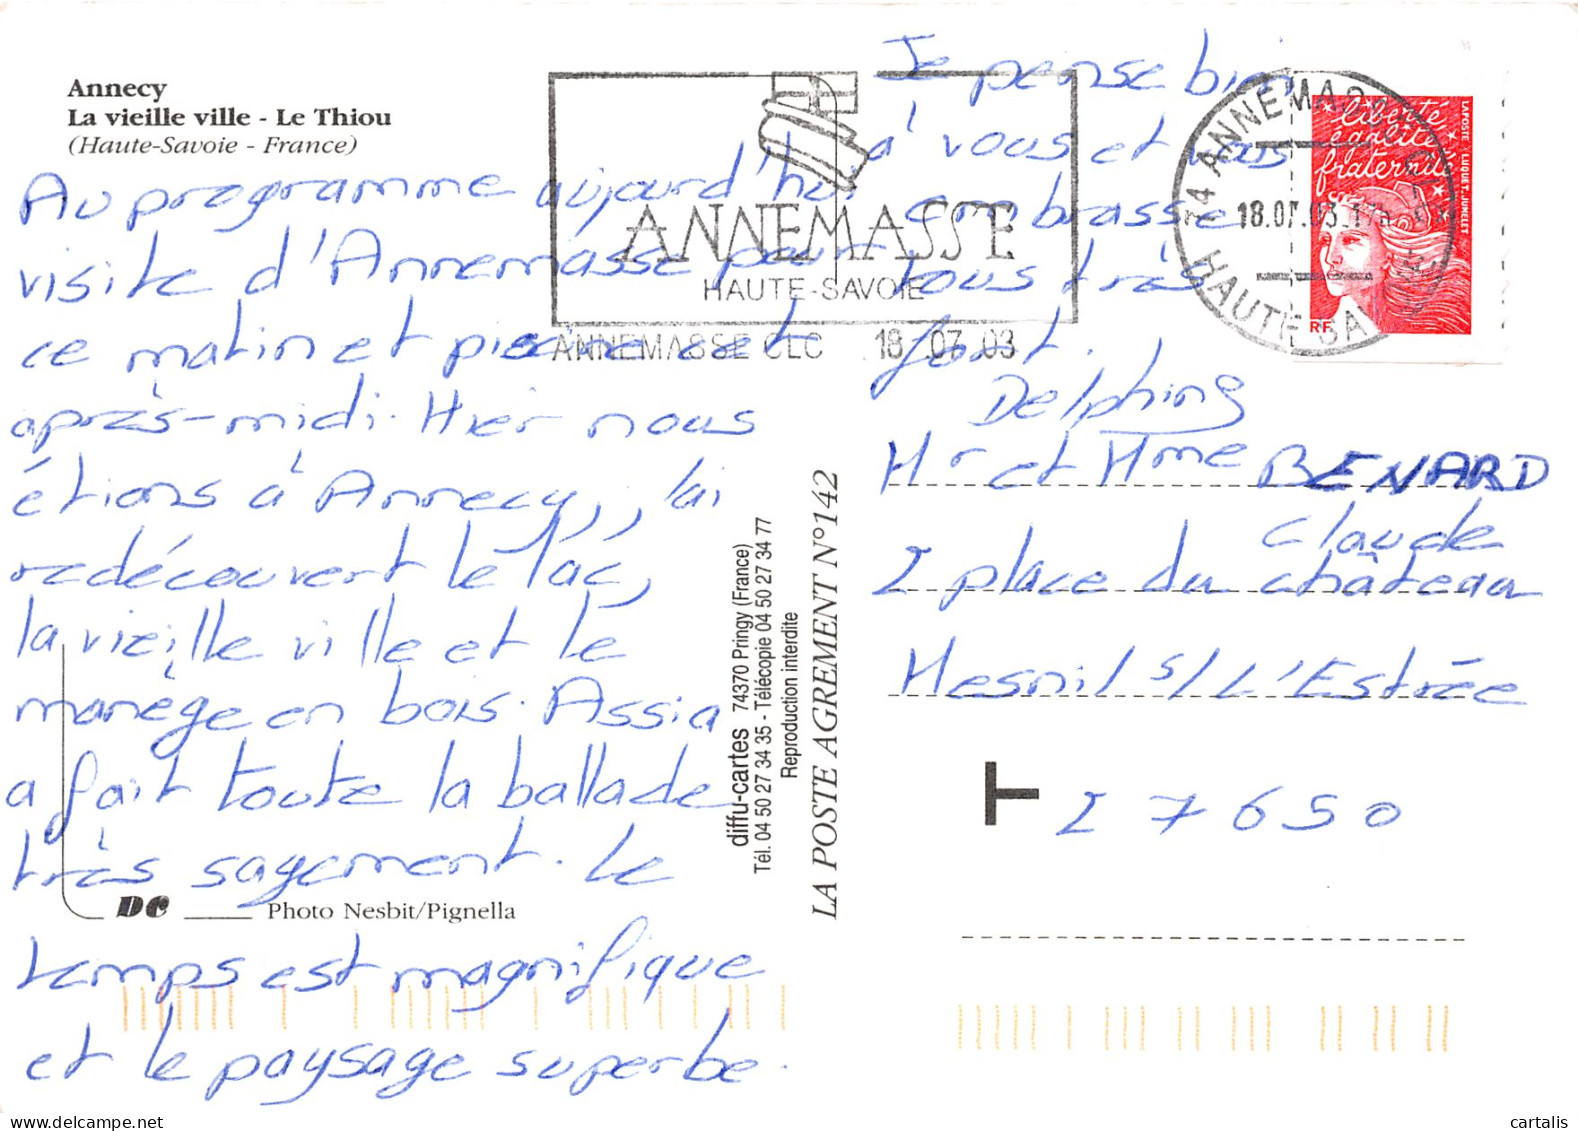 Annecy
La vieille ville - Le Thiou
(Haute-Savoie - France)
Au programme aujourd'hui
visite d'Annemasse pour
ce matin et piscine cet
après-midi. Hier nous
étions à Annecy, j'ai
redécouvert le lac,
la vieille ville et le
manège en bois. Assia
a fait toute la ballade
très sagement. Le
temps est magnifique
et le paysage superbe.
DC
Photo Nesbit/Pignella
ANNEMASSE
HAUTE-SAVOIE
ANNEMASSE CLC 18 07 03
Je pense bien
à vous et vous
embrasse
tous très
fort.
Delphine
74 ANNEMASSE CLC
18.07.03
HAUTE-SAVOIE
liberté
égalité
fraternité
RF
LA POSTE LUQUET. JUMELET
Mr et Mme BENARD
Claude
2 place du château
Mesnil s/ L'Estrée
T
27650
diffu-cartes 74370 Pringy (France)
Tél. 04 50 27 34 35 - Télécopie 04 50 27 34 77
Reproduction interdite
LA POSTE AGREMENT N°142
cartalis